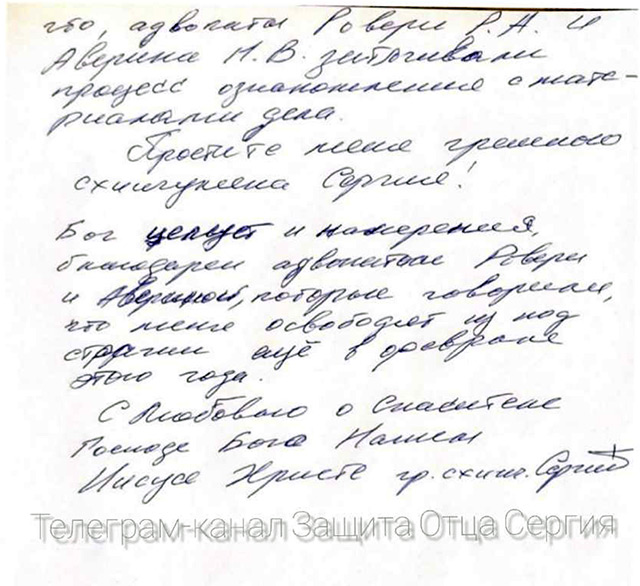 что, адвокаты Ровери Р.А. и
Аверина Н.В. затягивали
процесс ознакомления с мате-
риалами дела.
Простите меня грешного
схиигумена Сергия!
Бог целует и намерения,
благодарен адвокатам Ровери
и Авериной, которые говорили,
что меня освободят из под
стражи ещё в феврале
этого года.
С любовью о Спасителе
Господе Боге Нашем
Иисусе Христе гр. схиг. Сергий
Телеграм-канал Защита Отца Сергия